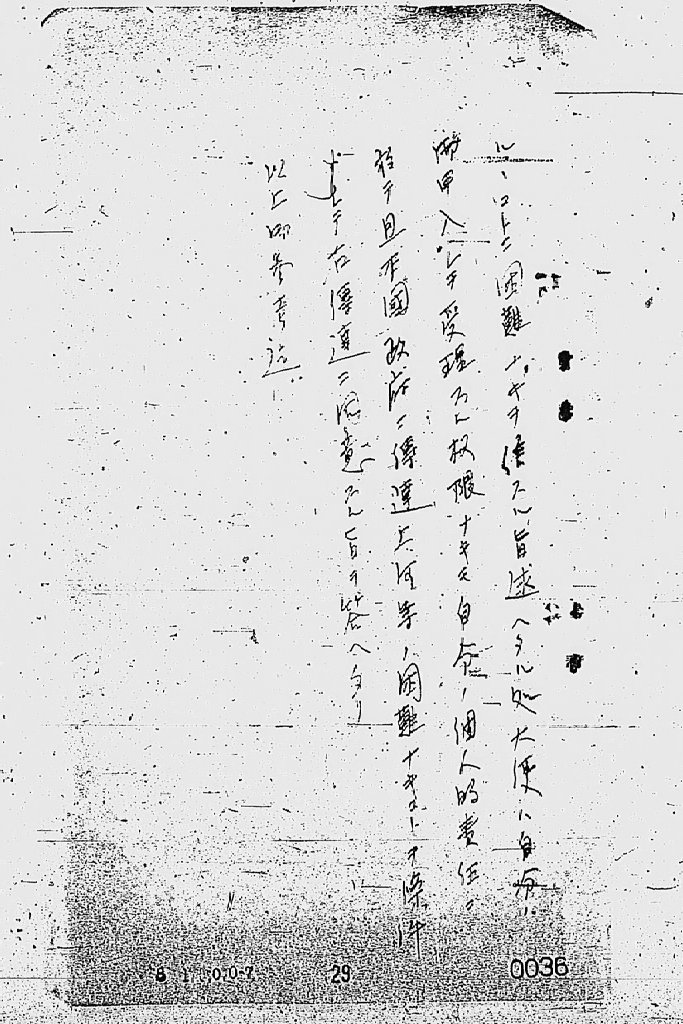 ルコトニ困難ナキヲ信スル旨述ヘタル処大使ハ自分ハ
申入レヲ受理スル権限ナキモ自分ノ個人的責任ニ
於テ且不國政府ニ傳達上何等ノ困難ナキコトヲ條件
トシテ右傳達ニ同意スル旨ヲ答ヘタリ
以上御参考迄
8 1 0.0-7 29 0036